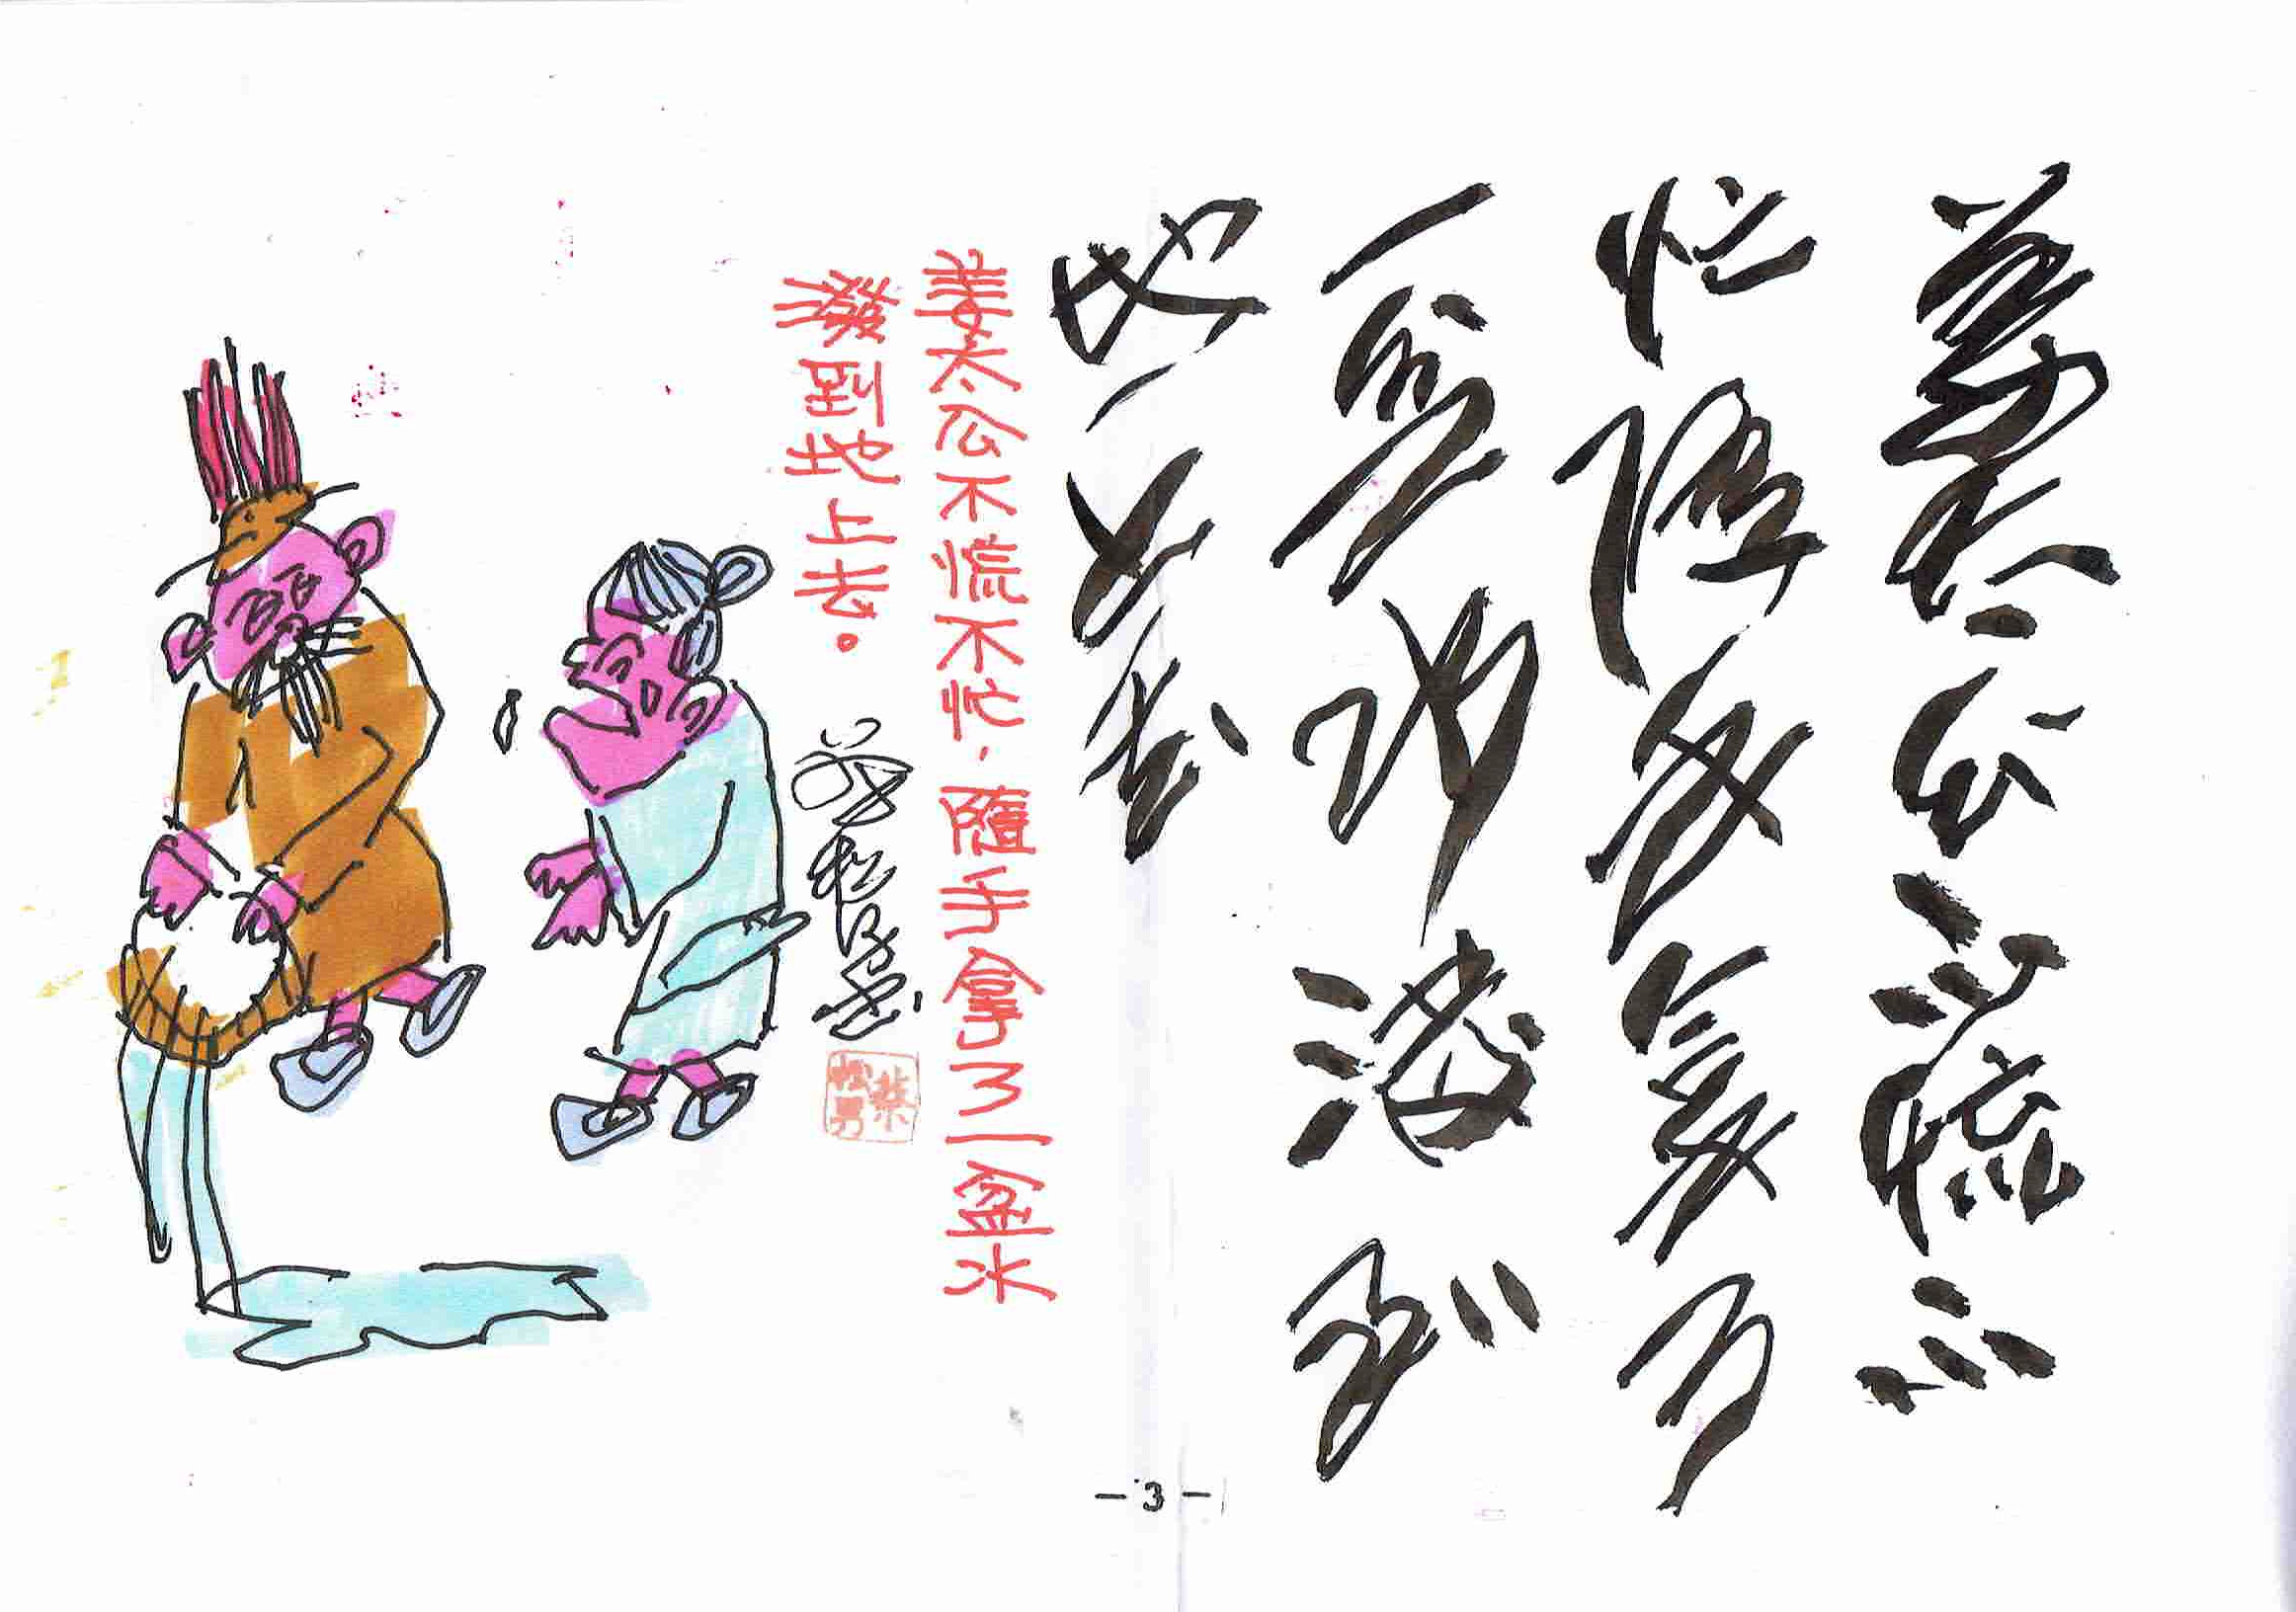 姜太公不慌不
忙隨手拿了
一盆水潑到
地上去
姜太公不慌不忙，隨手拿了一盆水
潑到地上去。
蔡松男畫
蔡松男
-3-